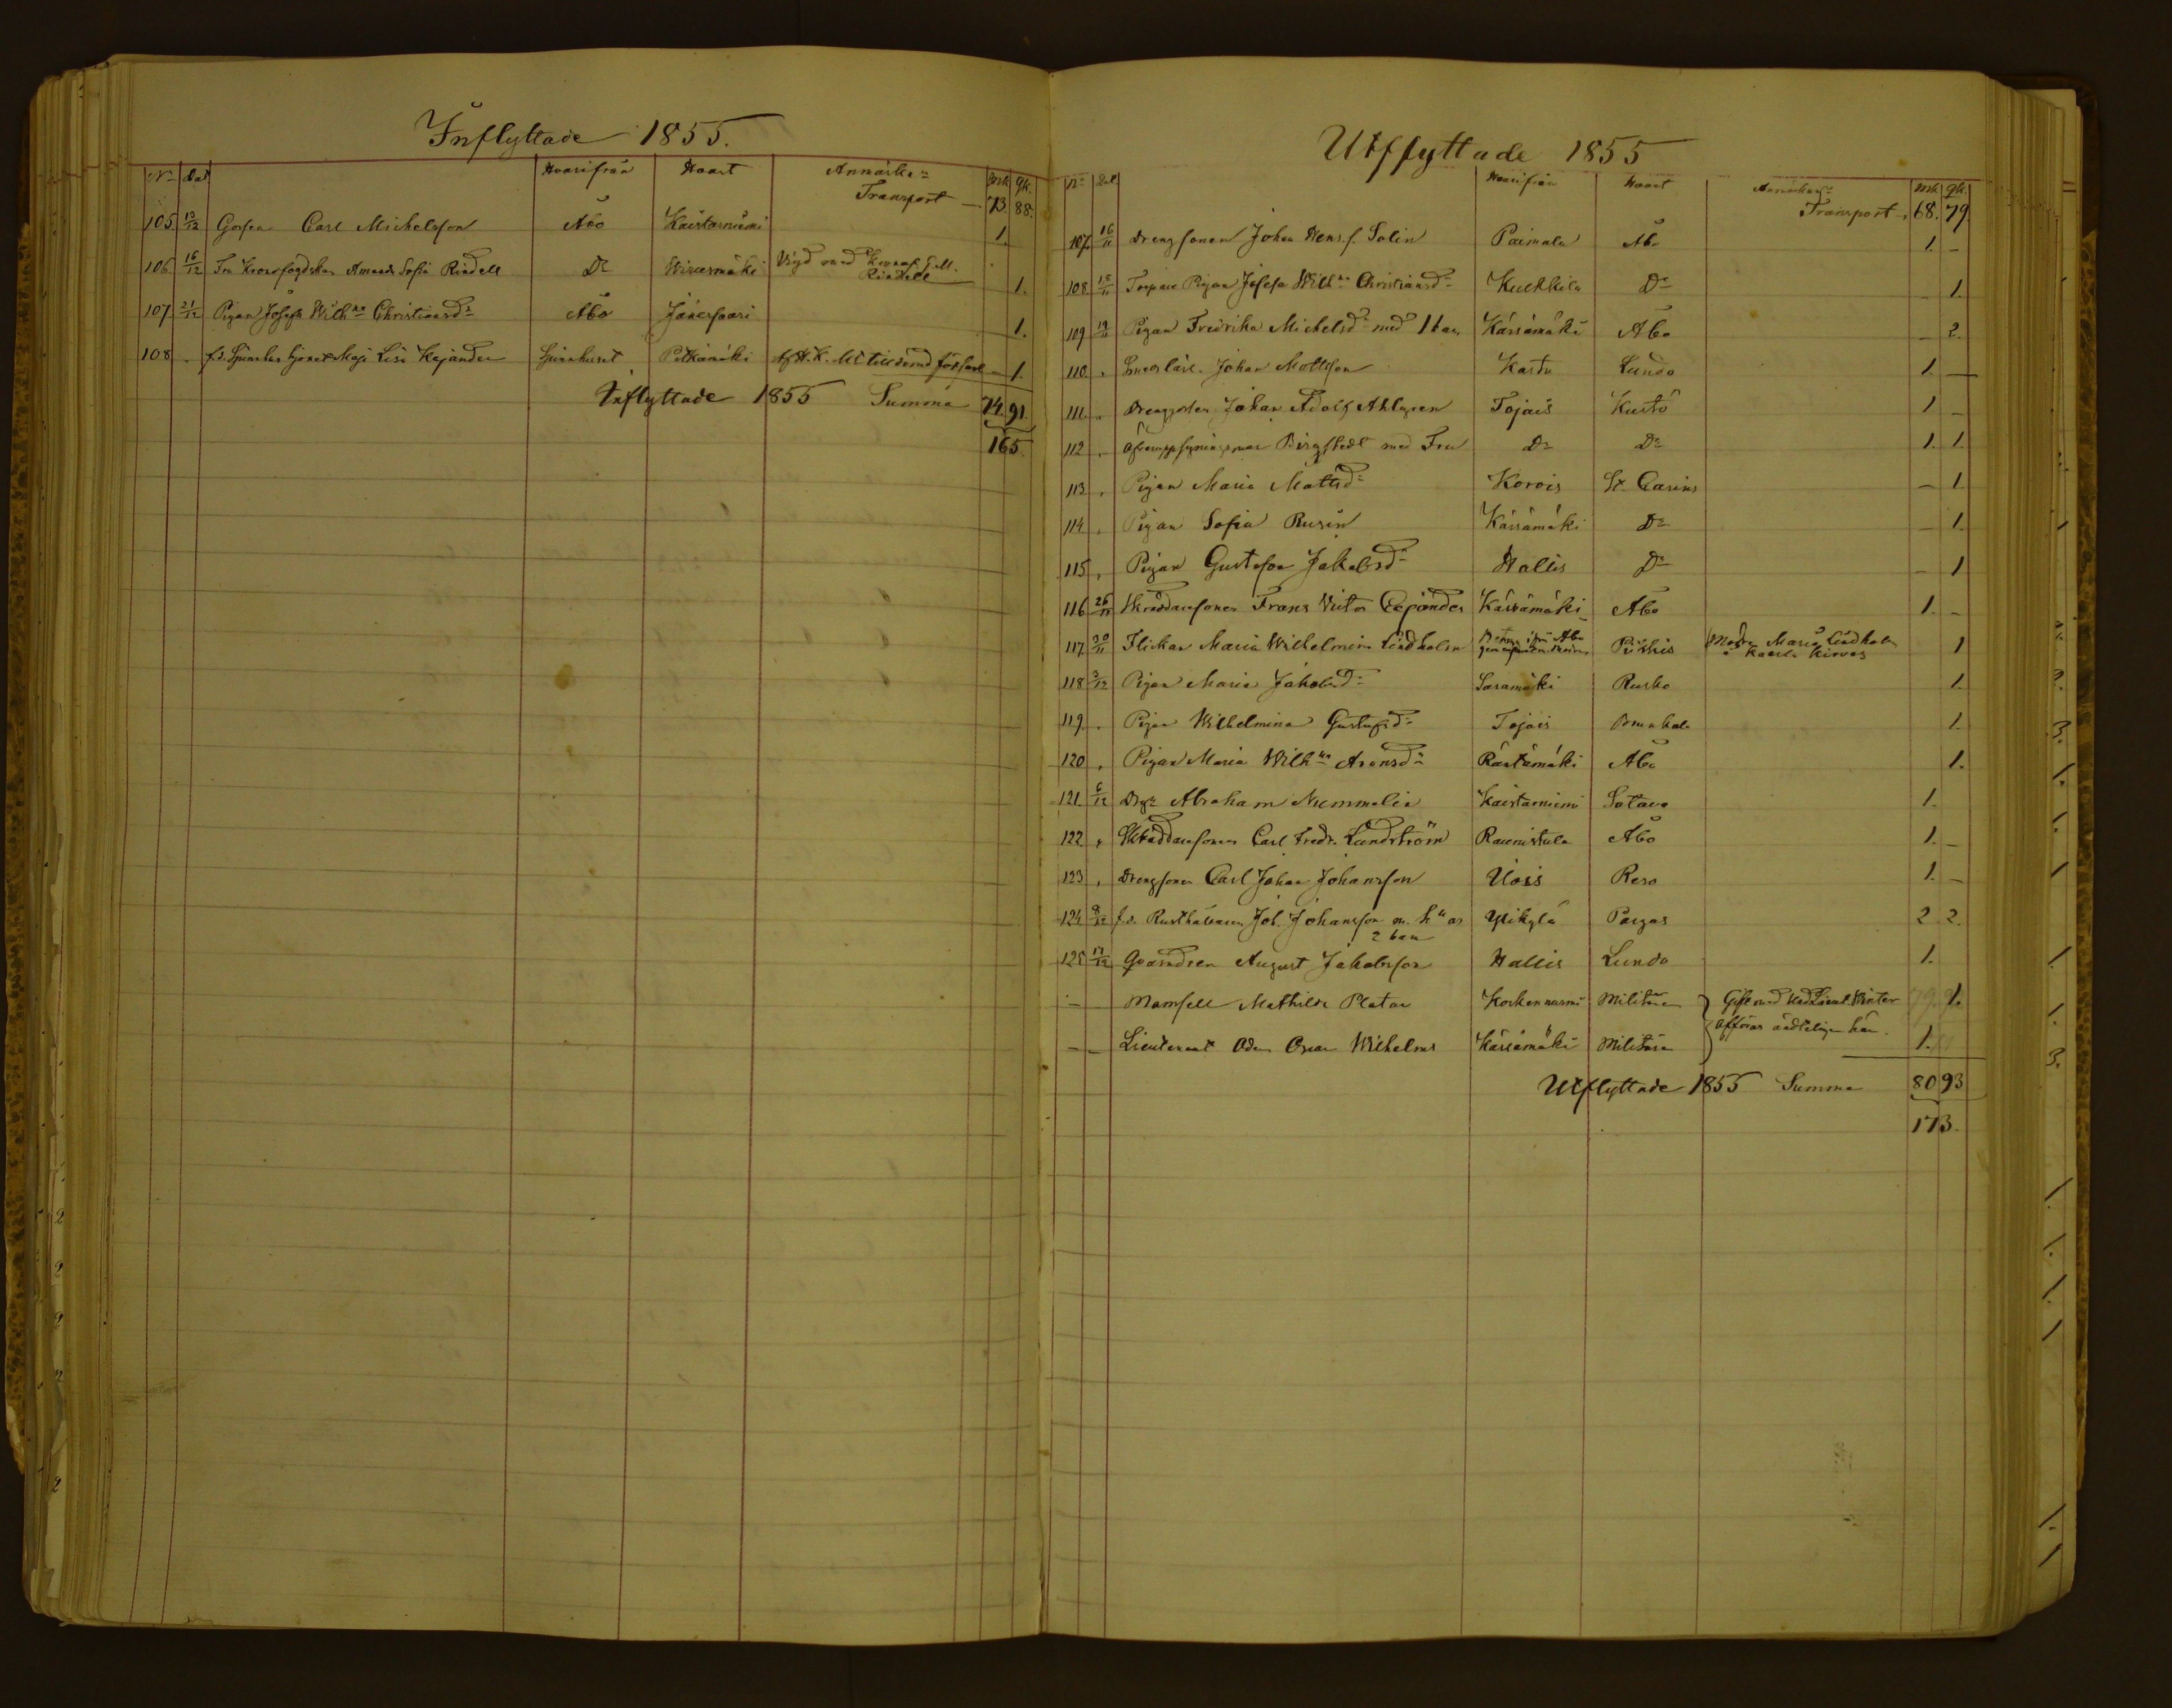 Inflyttade 1855.
No Dat Hvarifrån Hvart Annärkn: Mk. Qk.
Transport — 73. 88.
105. 13/12 Gossen Carl Michelsson Åbo Kaistarniemi 1.
106 16/12 Fru Kronofogdskan Amanda Sofia Rindell Do Wirusmäki Vigd med Rindell 1.
107. 21/12 Pigan Josefa Wilhna Christiansdr Åbo Jänessaari 1.
108 f.d. Lisa Kajander Spinhuset Pitkämäki Af H.K. till — 1.
Inflyttade 1855 Summa 74. 91.
165.
Utflyttade 1855
No Dat Hvarifrån Hvart Annärkn: Mk. Qk.
Transport 68. 79
107. 16/11 Drengsonen Johan Henr. s. Solin Paimala Åbo 1. —
108. 18/11 Pigan Josefa Wilhna Christiansdr Kuckkila Do — 1.
109 19/11 Pigan Fredrika Michelsdr med 1 barn Kärsämäki Åbo — 2.
110. Johan Mattsson Kardu Lundo 1. —
111. Drengen Johan Adolf Ahlgren Tojais Kustö 1 —
112 Bergstedt med Fru Do Do 1. 1.
113. Pigan Maria Mattsdr Korois St. Carins — 1.
114. Pigan Sofia Rusin Kärsämäki Do — 1.
115. Pigan Gustafva Jakobsdr Hallis Do — 1
116 26/11 Skräddaresonen Frans Victor Cajander Kärsämäki Åbo 1. —
117. 30/11 Flickan Maria Wilhelmina Lindholm Åbo Pikkis Modren Maria Lindholm 1
118 3/12 Pigan Maria Jakobsdr Saramäki Rusko 1.
119. Pigan Wilhelmina Gustafsdr Tojais 1.
120 Pigan Maria Wilhna Aronsdr Räntämäki Åbo 1.
121. 6/12 Drg: Abraham Nummelin Kaistarniemi Satava 1.
122. Skräddaresonen Carl Fredr. Lundström Raunistula Åbo 1. —
123 Drengsonen Carl Johan Johansson Uois Reso 1. —
124 9/12 f.d. Rusthållaren Joh. Johansson m. h:u o Ylikylä Pargas 2 2.
2 barn
125 17/12 August Jakobsson Hallis Lundo 1.
— Mamsell Mathilda Platan Koskennurmi Militären Gift med Lieut. Winter 1.
— — Lieutenant Oscar Wilhelms Kärsämäki Militären afföras här. 1.
Utflyttade 1855 Summa 80 93
173.